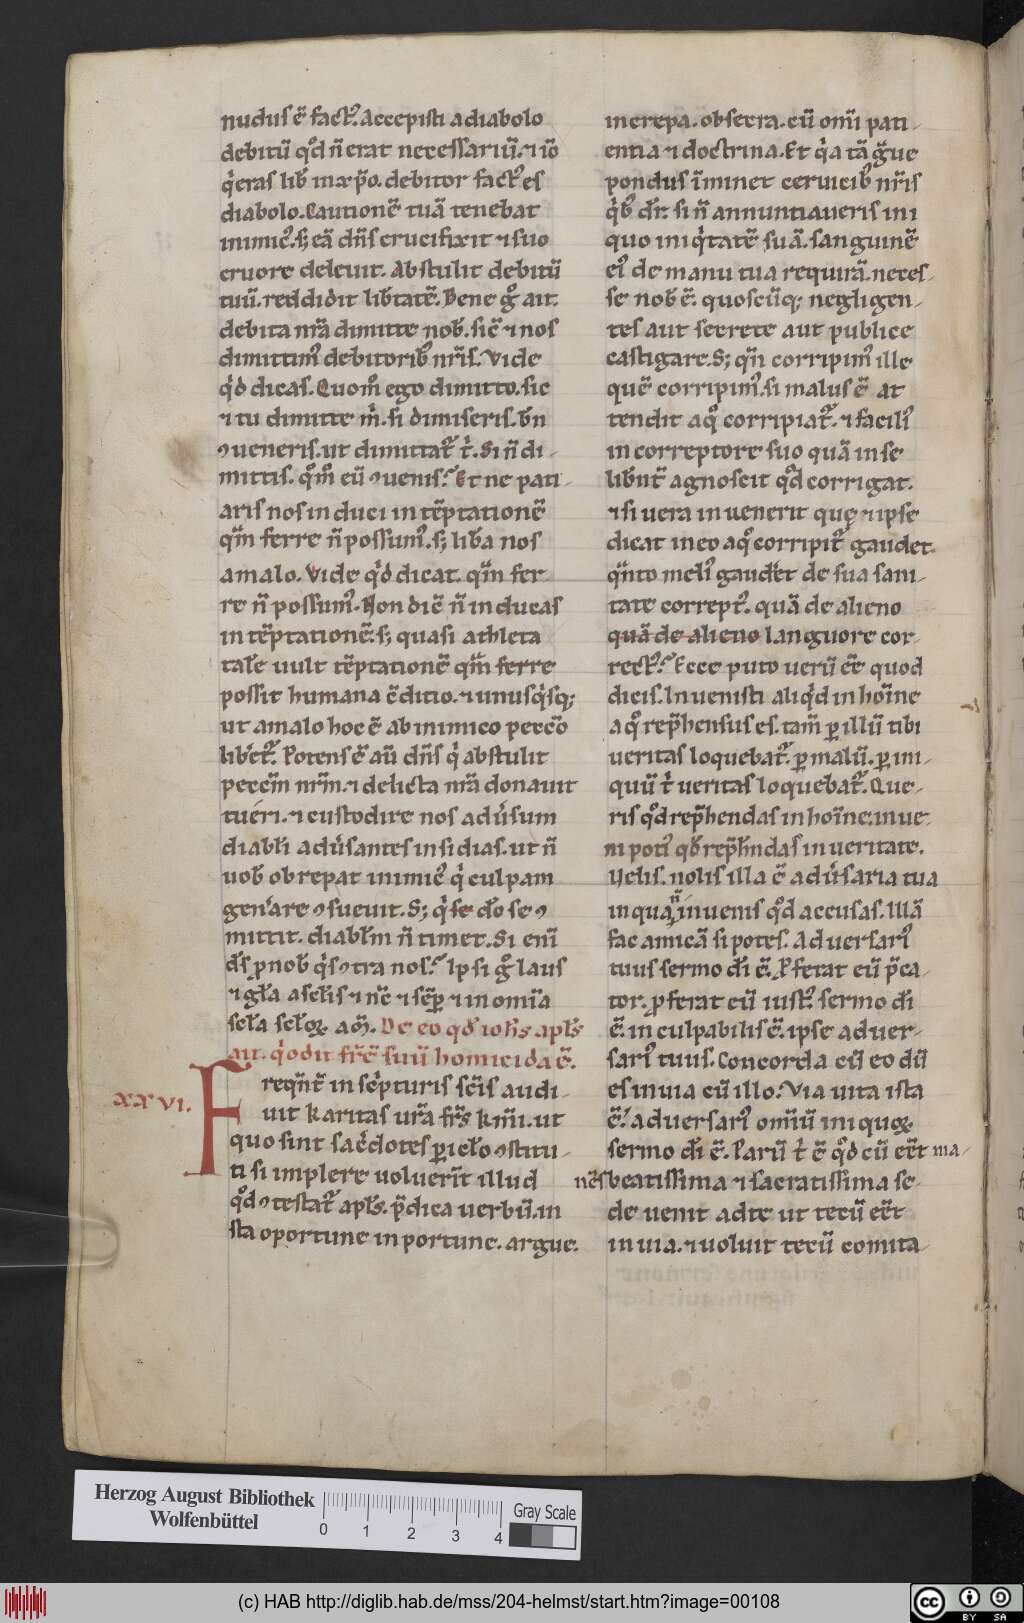 nudus ē fact᷒. Accepisti a diabolo
debitū qd̊ n̄ erat necessariū. ⁊ iō
q̇ eras lib̄ in xp̄o. debitor fact᷒ es
diabolo. Cautionē tuā tenebat
inimic᷒. s; eā dn̄s crucifixit ⁊ suo
cruore deleuit. Abstulit debitū
tuū. reddidit lib̄tatē. Bene g̊ ait.
debita nr̄a dimitte nob̄. sic̄ ⁊ nos
dimittim᷒ debitorib᷒ nr̄is. Vide
q̇d dicas. Quom̊ ego dimitto. sic
⁊ tu dimitte ṁ. si dimiseris. bn̄
ꝯueneris. ut dimittat᷑ ṫ. Si n̄ di-
mittis. q̊m̊ eū ꝯuenis? Et ne pati-
aris nos induci in tēptationē
qm̄ ferre n̄ possum᷒. s; lib̄a nos
a malo. Vide q̇d dicat. qm̄ fer-
re n̄ possum᷒. Non dic̄ n̄ inducas
in tēptationē. s; quasi athleta
talē uult tēptationē qm̄ ferre
possit humana ꝯditio. ⁊ unusq̇sq;
ut a malo hoc ē ab inimico peccō
libet᷑. Potens ē aū dn̄s q̇ abstulit
peccm̄ nr̄m. ⁊ delicta nr̄a donauit
tueri. ⁊ custodire nos adu̇sum
diabli adu̇santes insidias. ut n̄
uob̄ obrepat inimic᷒ q̇ culpam
gen̄are ꝯsueuit. S; q̇ se dō se ꝯ-
mittit. diablm̄ n̄ timet. Si enī
ds̄ ꝓ nob̄ q̇s ꝯtra nos? Ipsi g̊ laus
⁊ gl̄a a secl̄is ⁊ nc̄ ⁊ sēꝑ ⁊ in om̄ia
scl̄a scl̄oꝝ am̄. De eo qd̊ ioh̄s apl̄s
ait. q̇ odit fr̄ē suū homicida ē.
xxvi. Freqn̄t in sc̄pturis sc̄is audi-
uit karitas ur̄a fr̄s km̄i. ut
quo sint sac̄dotes ꝑicl̄o ꝯstitu-
ti si implere uoluerīt illud
qd̊ ꝯtestat᷑ apl̄s. p̄dica uerbū. in-
sta oportune inportune. argue.
increpa. obsecra. cū omī pati-
entia ⁊ doctrina. Et q̇a tā g̈ue
pondus īminet ceruicib᷒ nr̄is
q̇b᷒ dr̄. si n̄ annuntiaueris ini-
quo iniq̇tatē suā. sanguinē
ei᷒ de manu tua requirā. neces-
se nob̄ ē. quoscūq; negligen-
tes aut secrete aut publice
castigare. S; qn̄ corripim᷒ ille
quē corripim᷒. si malus ē at
tendit a q̊ corripiat᷑. ⁊ facili᷒
in correptore suo quā in se
lib̄nt̄ agnoscit qd̊ corrigat.
⁊ si uera inuenerit quę ⁊ ipse
dicat in eo a q̊ corripit᷑ gaudet.
qn̄to meli᷒ gaudēt de sua sani-
tate corrept᷒. quā de alieno
quā de alieno languore cor-
rect᷒? Ecce puto uerū ēē quod
dicis. Inuenisti aliq̇d in hoīne
a q̊ rep̄hensus es. tam̄ ꝑ illū tibi
ueritas loquebat᷑. ꝑ malū. ꝑ ini-
quū ṫ ueritas loquebat᷑. Que-
ris qd̊ rep̄hendas in hoīne. inue-
ni poti᷒ qd̊ rep̄hn̄das in ueritate.
Uelis. nolis illa ē adu̇saria tua
in qua n̄ inuenis qd̊ accusas. Illā
fac amicā si potes. Aduersari᷒
tuus sermo dī ē. Ꝓferat eū p̄ca-
tor. ꝓferat eū iust᷒ sermo dī
ē. inculpabilis ē. ipse aduer-
sari᷒ tuus. Concorda cū eo dū
es in uia cū illo. Via uita ista
ē. aduersari᷒ omiū iniquoꝝ
sermo dī ē. Parū ṫ ē qd̊ cū ēēt ma-
nēs beatissima ⁊ sacratissima se-
de uenit ad te ut tecū ēēt
in uia. ⁊ uoluit tecū comita-
Herzog August Bibliothek
Wolfenbüttel
0 1 2 3 4
Gray Scale
(c) HAB http://diglib.hab.de/mss/204-helmst/start.htm?image=00108
cc BY SA